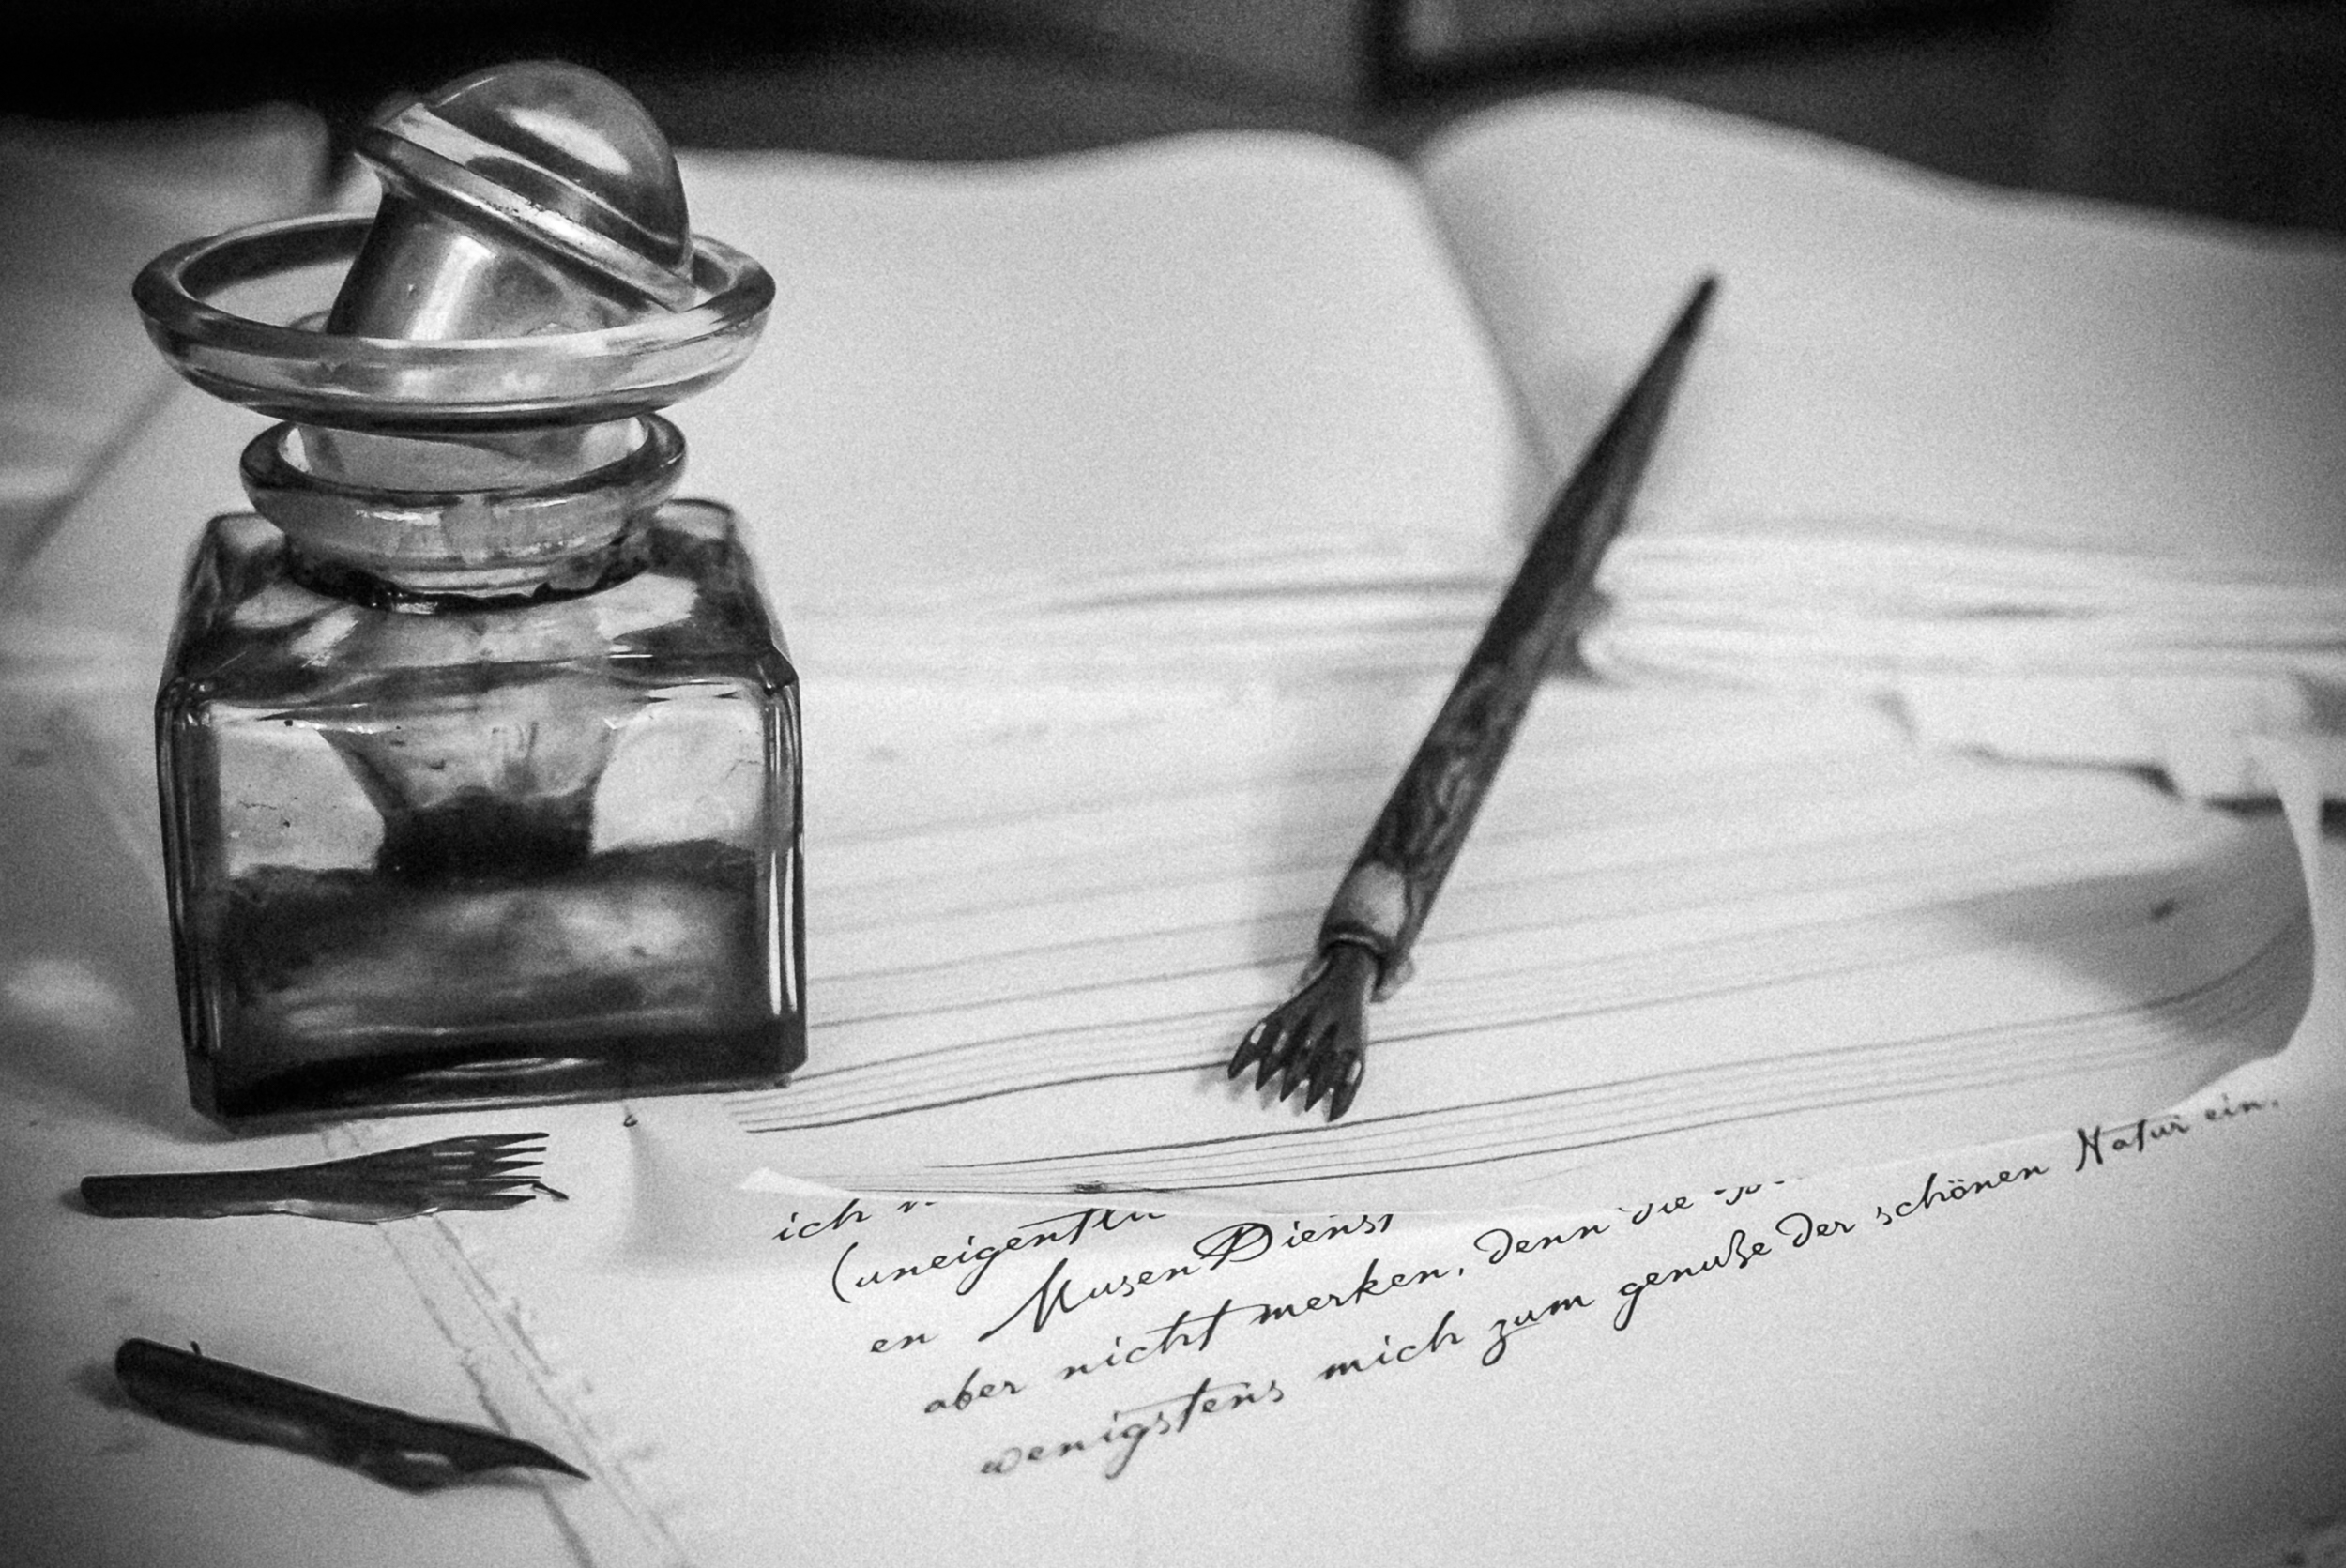 ich
(uneigentli
en MusenDienst
aber nicht merken, denn die
wenigstens mich zum genuße der schönen Natur ein.